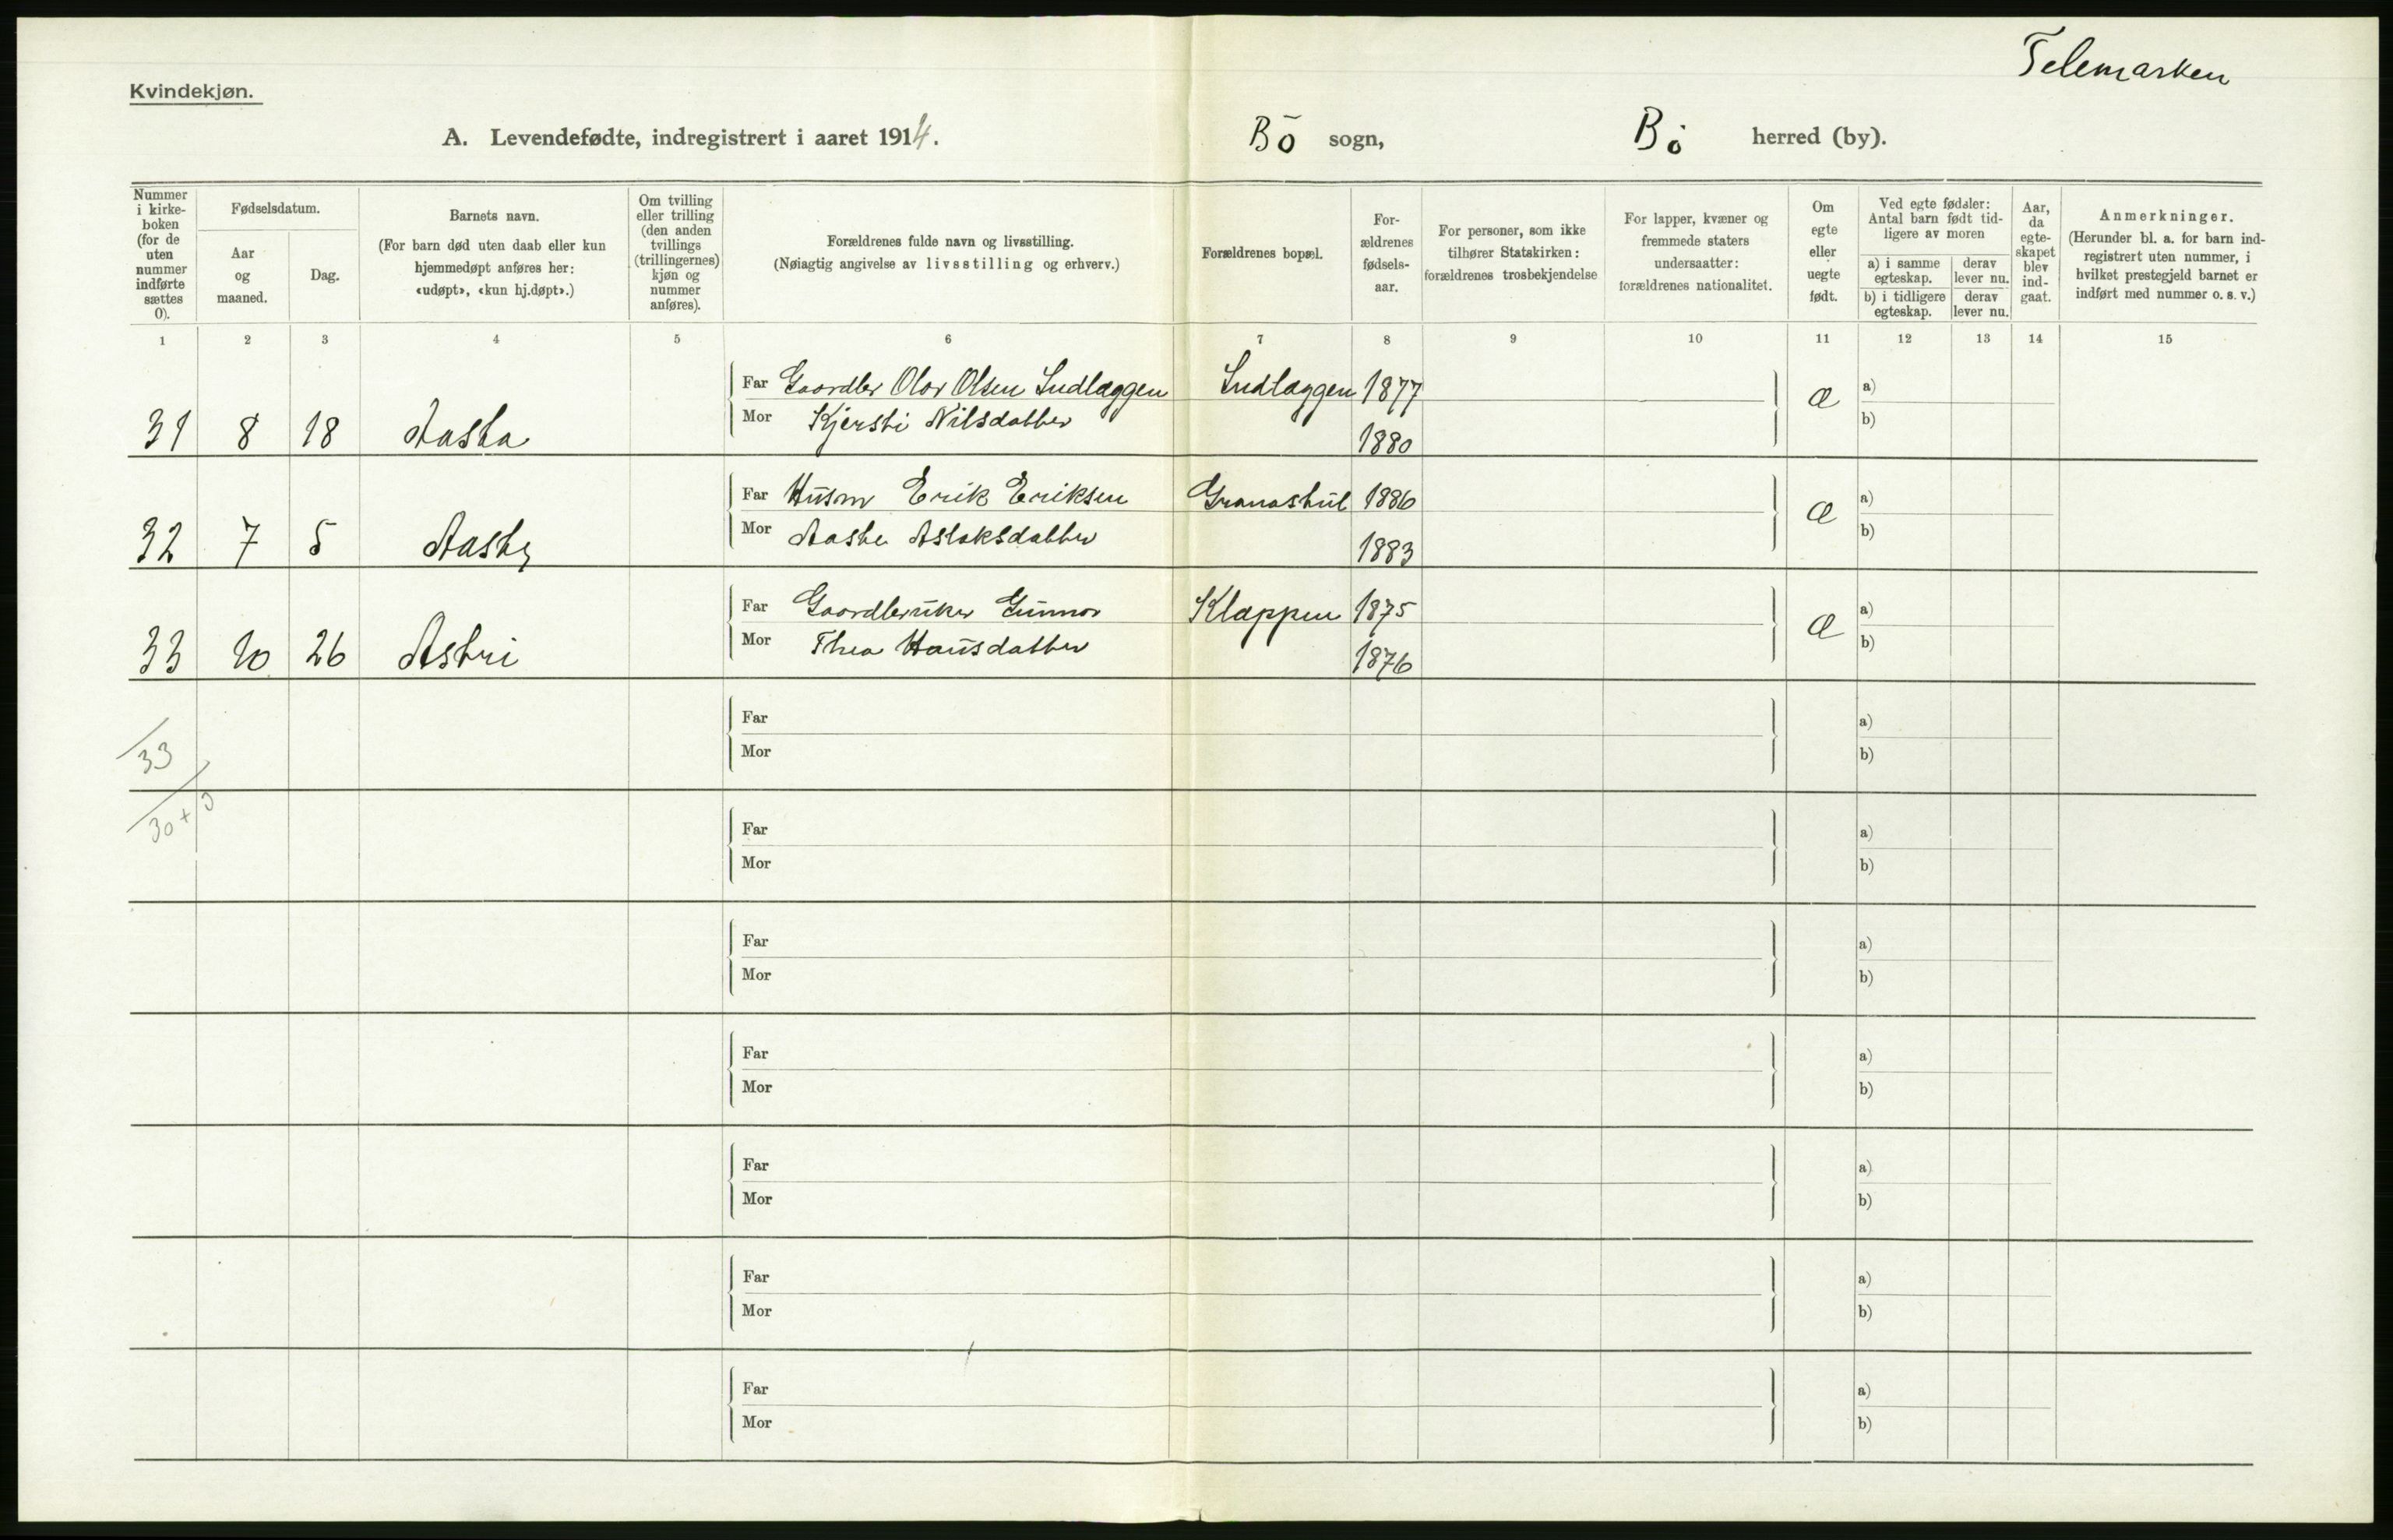 Telemarken
Kvindekjøn.
A. Levendefødte, indregistrert i aaret 1914. Bö sogn, Bö herred (by).
Nummer i kirke-boken (for de uten nummer indførte sættes 0).
Fødselsdatum.
Aar og maaned.
Dag.
Barnets navn.
(For barn død uten daab eller kun hjemmedøpt anføres her: «udøpt», «kun hj.døpt».)
Om tvilling eller trilling (den anden tvillings (trillingernes) kjøn og nummer anføres).
Forældrenes fulde navn og livsstilling.
(Nøiagtig angivelse av livsstilling og erhverv.)
Forældrenes bopæl.
For-ældrenes fødsels-aar.
For personer, som ikke tilhører Statskirken: forældrenes trosbekjendelse
For lapper, kvæner og fremmede staters undersaatter: forældrenes nationalitet.
Om egte eller uegte født.
Ved egte fødsler: Antal barn født tid-ligere av moren
a) i samme egteskap. derav lever nu.
b) i tidligere egteskap. derav lever nu.
Aar, da egte-skapet blev ind-gaat.
Anmerkninger.
(Herunder bl. a. for barn ind-registrert uten nummer, i hvilket prestegjeld barnet er indført med nummer o. s. v.)
1 2 3 4 5 6 7 8 9 10 11 12 13 14 15
Far Gaardbr Olav Olsen Sudlæggen Sudlæggen 1877 a)
31 8 18 Aasta Mor Kjersti Nilsdatter 1880 Æ b)
Far Husm Erik Eriksen 1886 a)
32 7 5 Mor Aaste Aslaksdatter 1883 Æ b)
Far Gaardbruker Gunnar Klappen 1875 a)
33 10 26 Astri Mor Thea Hansdatter 1876 Æ b)
Far a)
Mor b)
33
30+3
Far a)
Mor b)
Far a)
Mor b)
Far a)
Mor b)
Far a)
Mor b)
Far a)
Mor b)
Far a)
Mor b)